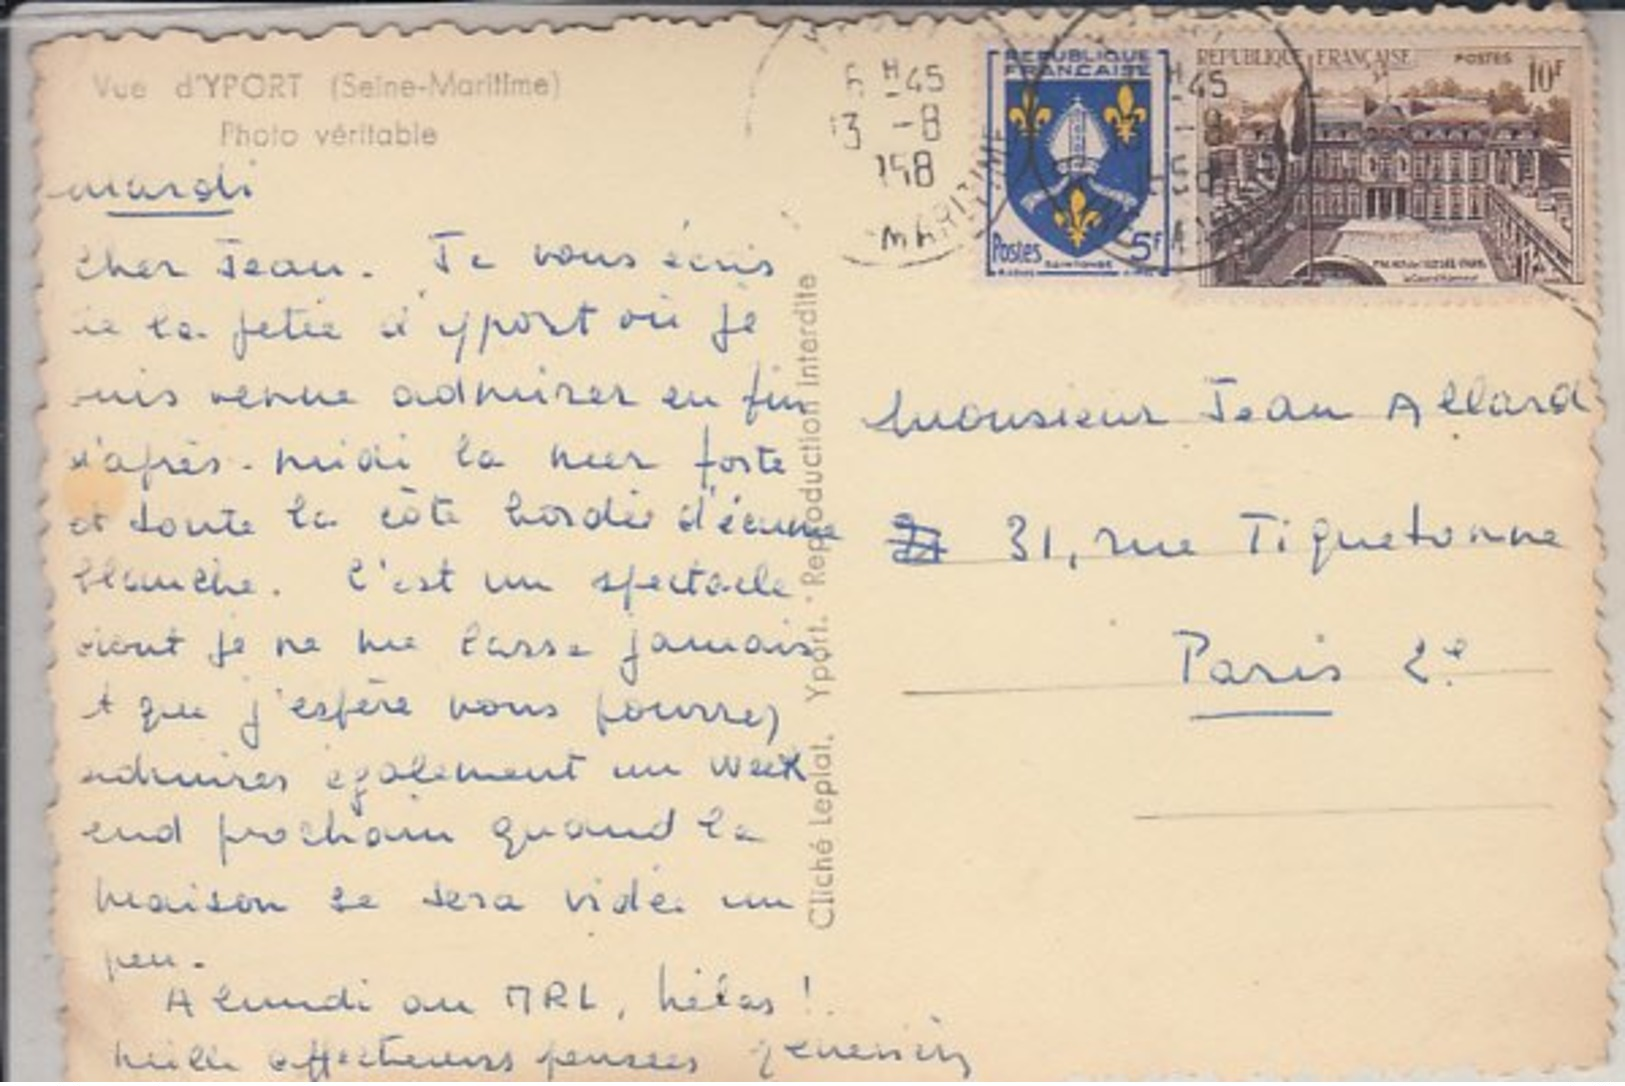 Vue d'YPORT (Seine-Maritime)
Photo véritable
mardi
Cher Jean. Je vous écris
de la jetée d'Yport où je
suis venue admirer en fin
d'après-midi la mer forte
et toute la côte bordée d'écume
blanche. C'est un spectacle
dont je ne me lasse jamais
et que j'espère vous pourrez
admirer également un week
end prochain quand la
maison se sera vidée un
peu.
A lundi au MRL, hélas !
mille affectueuses pensées
Cliché Leplat. Yport. - Reproduction interdite
6 H 45
13 -8
1958
MARITIME
REPUBLIQUE
FRANÇAISE
Postes 5F
SAINTONGE
H 45
-8
58
REPUBLIQUE FRANÇAISE POSTES 10F
Monsieur Jean Allard
31, rue Tiquetonne
Paris 2e